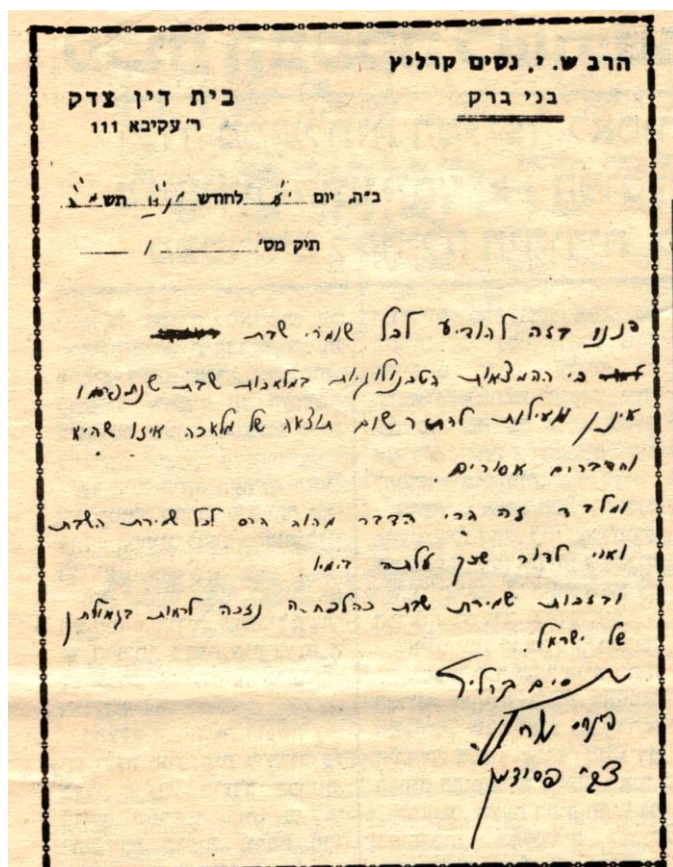 הרב ש. י. נסים קרליץ
בני ברק
בית דין צדק
ר' עקיבא 111
ב"ה, יום לחודש תש
תיק מס' 1
הננו בזה להודיע לכל שומרי שבת
כי ההמצאות הטכנולוגיות במלאכות שבת שנתפרסמו
אינן מועילות להתיר שום תוצאה של מלאכה איזו שהיא
והדברים אסורים.
ומלבד זה הרי הדבר מהוה הרס לכל שמירת השבת
ואוי לדור שכך עלתה בימיו
ובזכות שמירת שבת כהלכתה נזכה לראות בגאולתן
של ישראל.
נסים קרליץ